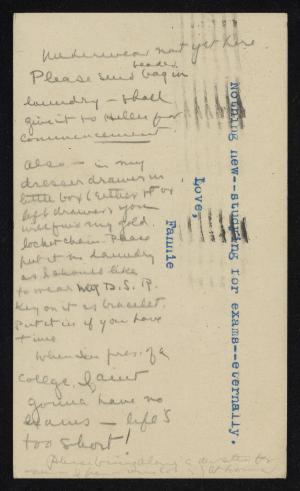 Underwear not yet here
Please send beaded bag in
laundry – shall
give it to Helen for
commencement
Also – in my
dresser drawer in
little box (either rt or
left drawer) you
will find my gold
locket chain. Please
put it in laundry
as I should like
to wear my D.S.R.
key on it as bracelet.
Put it in if you have
time
When I'm pres. of a
college, I aint
gonna have no
exams – life's
too short!
Please bring along a
at home
Nothing new--studying for exams--eternally.
Love,
Fannie